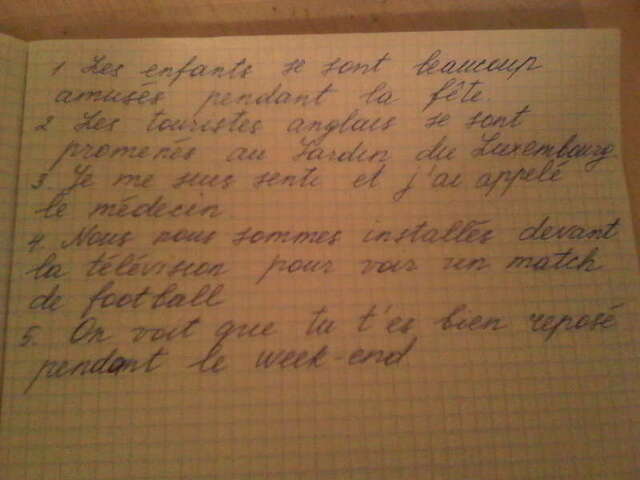 1 Les enfants se sont beaucoup
amusés pendant la fête.
2 Les touristes anglais se sont
promenés au Jardin du Luxembourg
3. Je me suis senti et j'ai appelé
le médecin
4. Nous nous sommes installés devant
la télévision pour voir un match
de football
5. On voit que tu t'es bien reposé
pendant le week-end